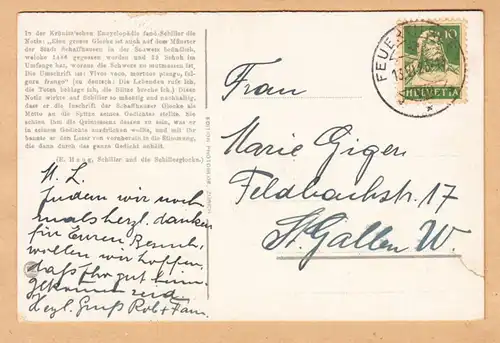 In der Krünitz'schen Encyclopädie fand Schiller die
Notiz: „Eine grosse Glocke ist auch auf dem Münster
der Stadt Schaffhausen in der Schweiz befindlich,
welche 1486 gegossen worden und 29 Schuh im
Umfange hat, woraus die Schwere zu mutmassen ist.
Die Umschrift ist: Vivos voco, mortuos plango, ful-
gura frango" (zu deutsch: Die Lebenden rufe ich,
die Toten beklage ich, die Blitze breche ich.) Diese
Notiz wirkte auf Schiller so mächtig und nachhaltig,
dass er die Inschrift der Schaffhauser Glocke als
Motto an die Spitze seines Gedichtes stellte. Sie
schien ihm die Quintessenz dessen zu sein, was er
in seinem Gedichte ausdrücken wollte, und mit ihr
konnte er den Leser von vornherein in die Stimmung,
die dann durch das Gedicht ausgeführt wird.
(E. Haug, Schiller und die Schillerglocke.)
M. L.
Indem wir noch
mals herzl. danken
für Euren Besuch,
wollen wir hoffen,
daß Ihr gut heim-
gekommen seid
Herzl. Gruß Rob + Fam.
EDITION PHOTOGLOB ZÜRICH
FEUER
10
HELVETIA
Frau
Marie Giger
Feldbachstr. 17
St. Gallen W.